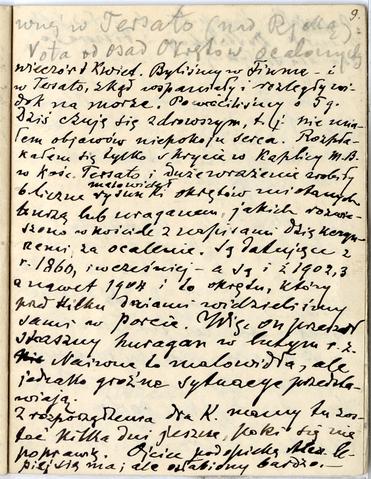 9.
wnej w Tersato (nad Rjeką)
Vota od osad Okrętów ocalonych
wieczór 8 Kwiet. Byliśmy w Fiume – i
w Tersato, skąd wspaniały i rozległy wi-
dok na morze. Powróciliśmy o 5 g.
Dziś czuję się zdrowszym, t.j. nie mia-
łem objawów niepokoju serca. Rozpła-
kałem się tylko skrycie w Kaplicy M.B.
w Kośc. Tersato i duże wrażenie zrobiły
liczne rysunki malowideł okrętów miotanych
burzą lub uraganem, jakich rozwie-
szono w kościele z napisami dziękczyn-
nemi, za ocalenie. Są datujące z
r. 1860, i wcześniej – a są i z 1902, 3
a nawet 1904 i to okrętu, który
przed kilku dniami widzieliśmy
sami w porcie. Więc on przeszedł
straszny huragan w lutym r. b.
Naiwne to malowidła, ale
jednako groźne sytuacye przedsta-
wiają.
Z rozporządzenia dra K. mamy tu zos-
tać kilka dni jeszcze, póki się nie
poprawię. Ojciec pod opieką Alex. le-
piej się ma; ale osłabiony bardzo. –